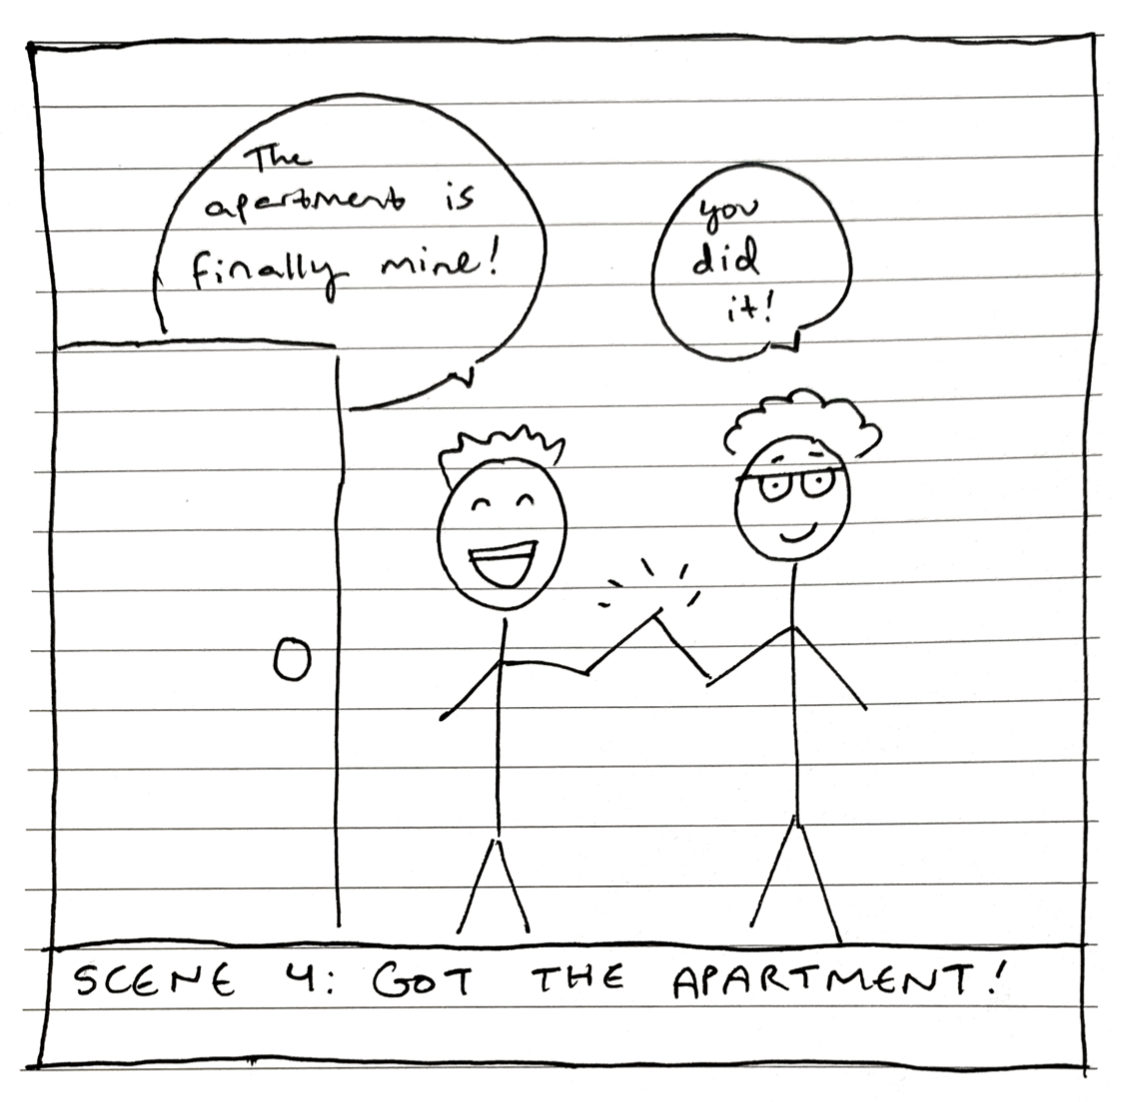 The
apartment is
finally mine!
you
did
it!
SCENE 4: GOT THE APARTMENT!